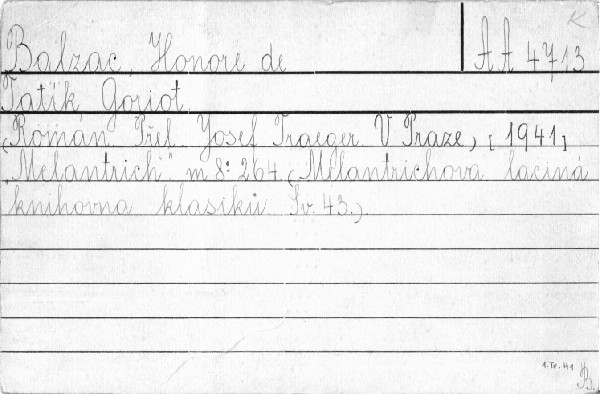 K
Balzac, Honoré de AA 4713
Tatík Goriot.
(Román. Přel. Josef Traeger. V Praze, [1941]
„Melantrich" m 8° 264. (Melantrichova laciná
knihovna klasiků Sv. 43.).